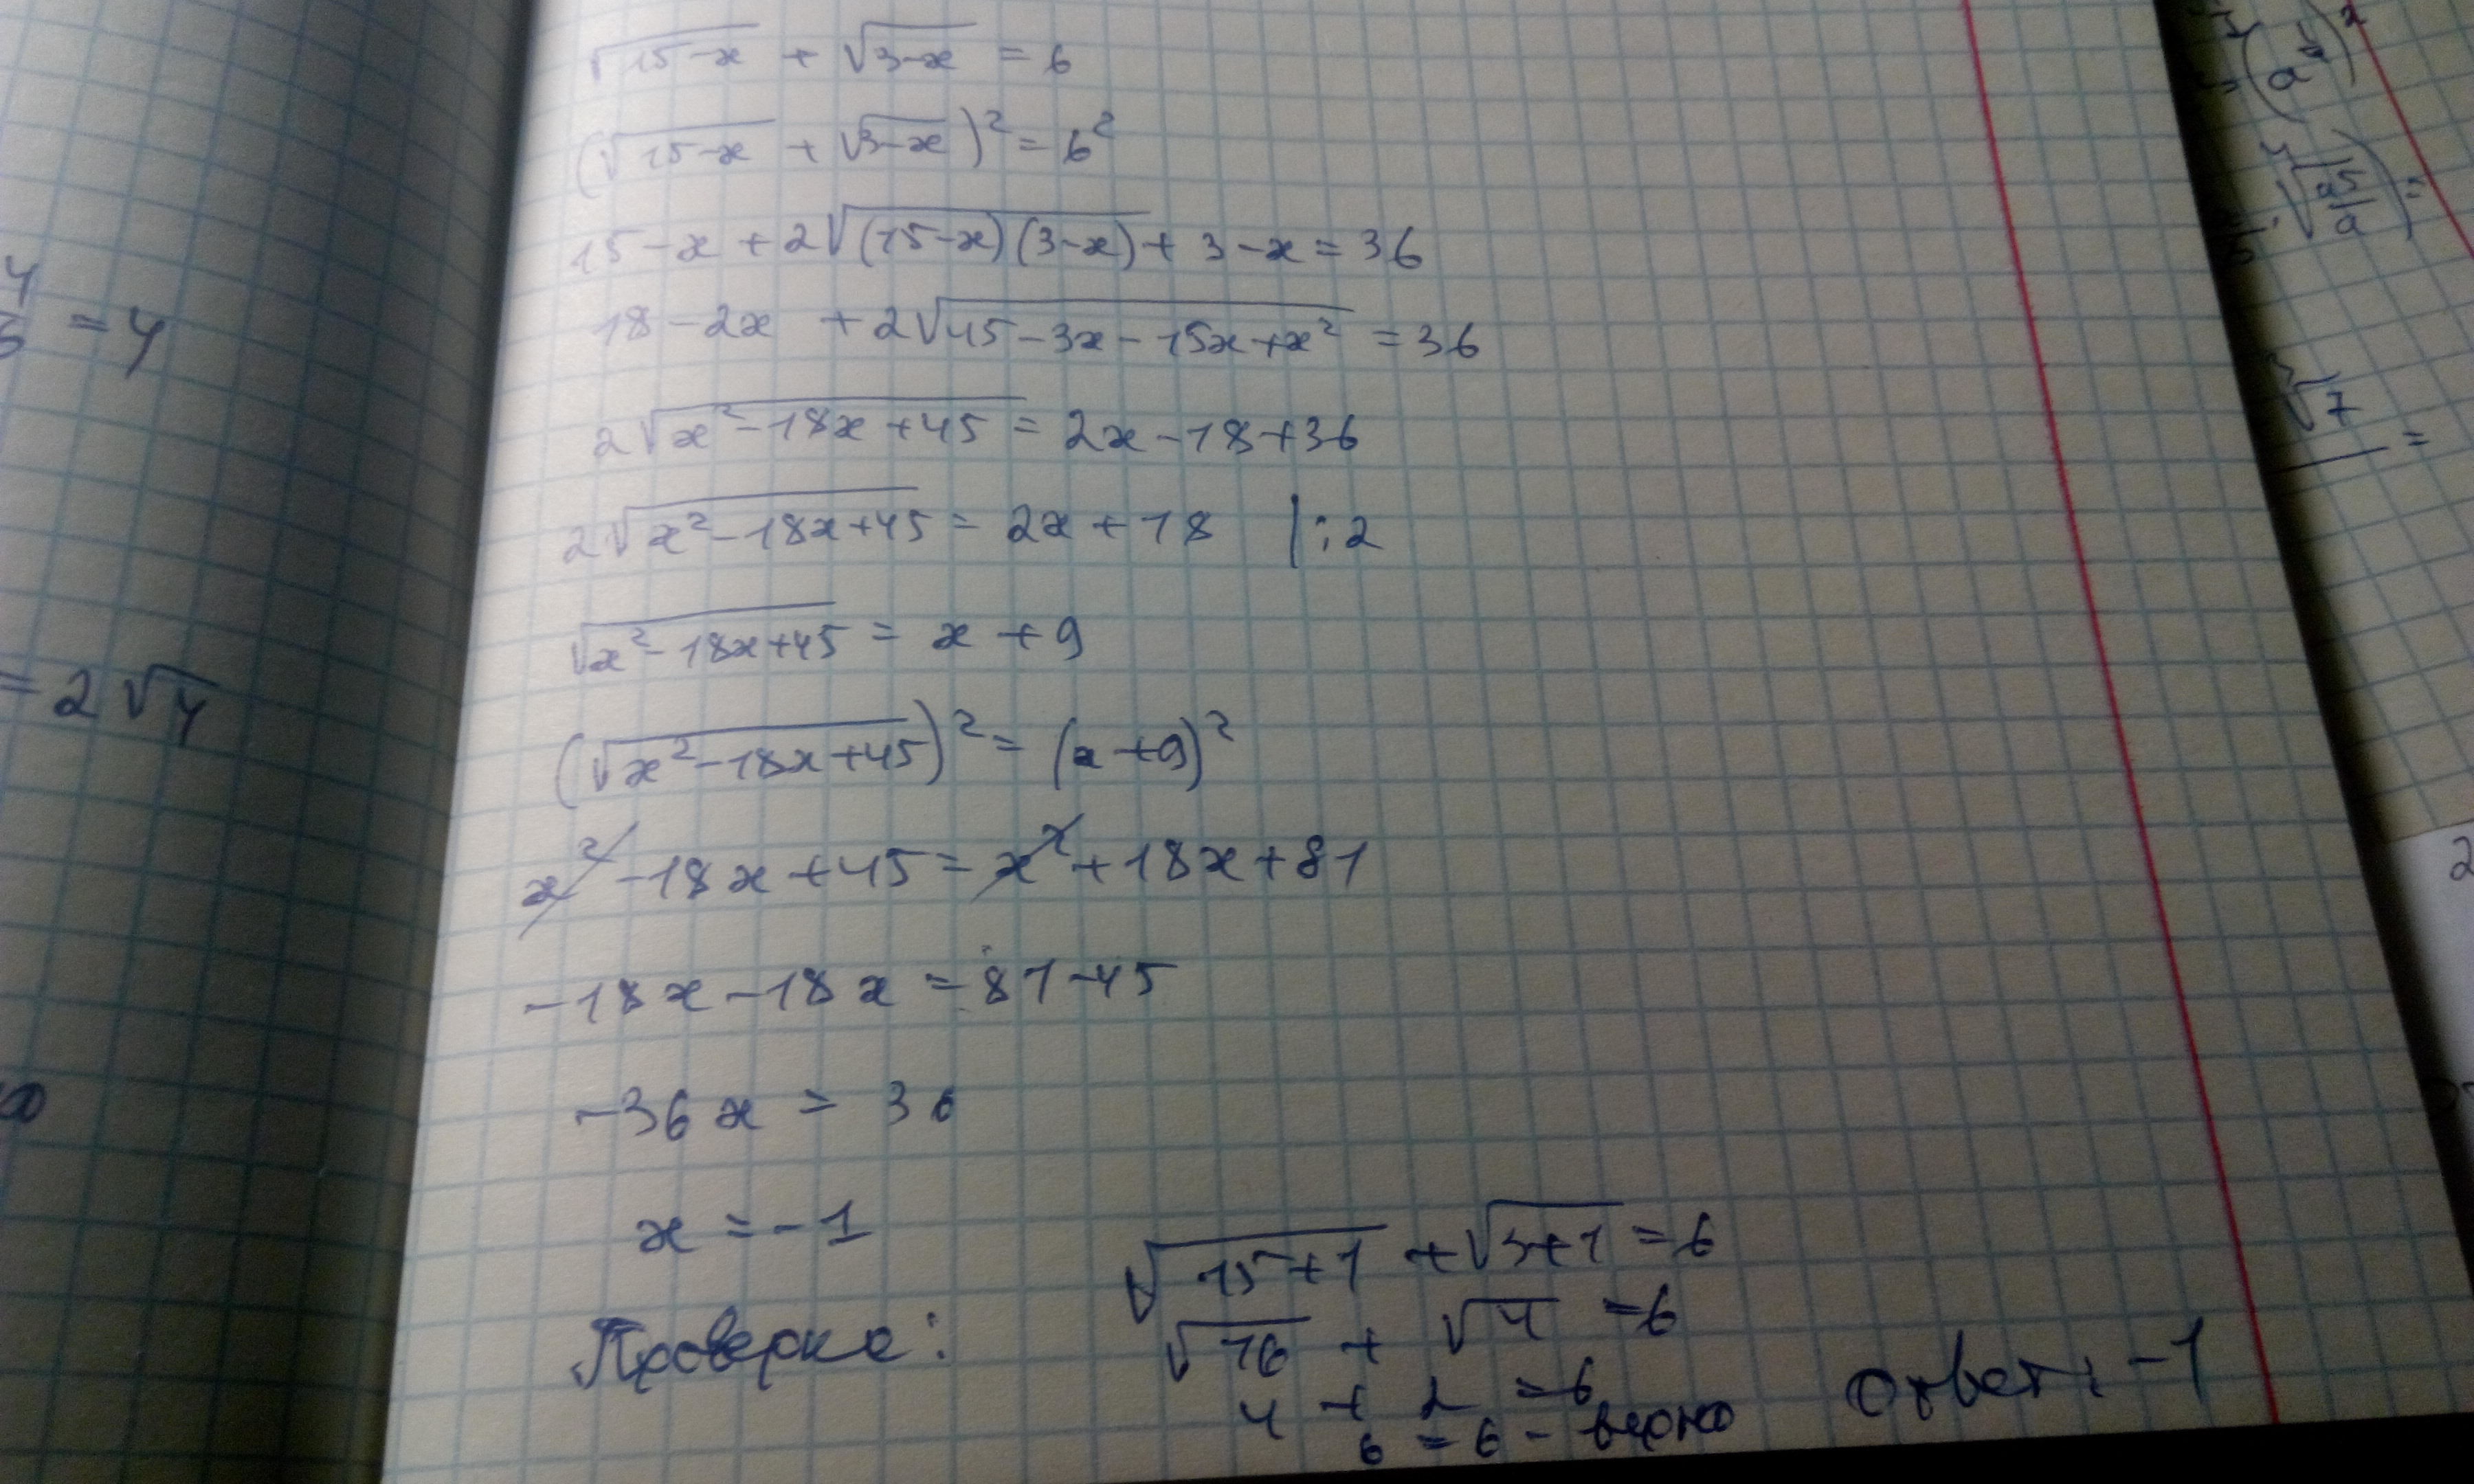 √(15-x) + √(3-x) = 6
(√(15-x) + √(3-x))² = 6²
15-x+2√((15-x)(3-x)) + 3-x = 36
18-2x +2√(45-3x-15x+x²) = 36
2√(x²-18x+45) = 2x-18+36
2√(x²-18x+45) = 2x+18 |:2
√(x²-18x+45) = x+9
(√(x²-18x+45))² = (x+9)²
x²-18x+45 = x²+18x+81
-18x-18x = 81-45
-36x = 36
x = -1
Проверка:
√(15+1) + √(3+1) = 6
√16 + √4 = 6
4 + 2 = 6
6 = 6 - верно
Ответ: -1
= 4
= 2√4